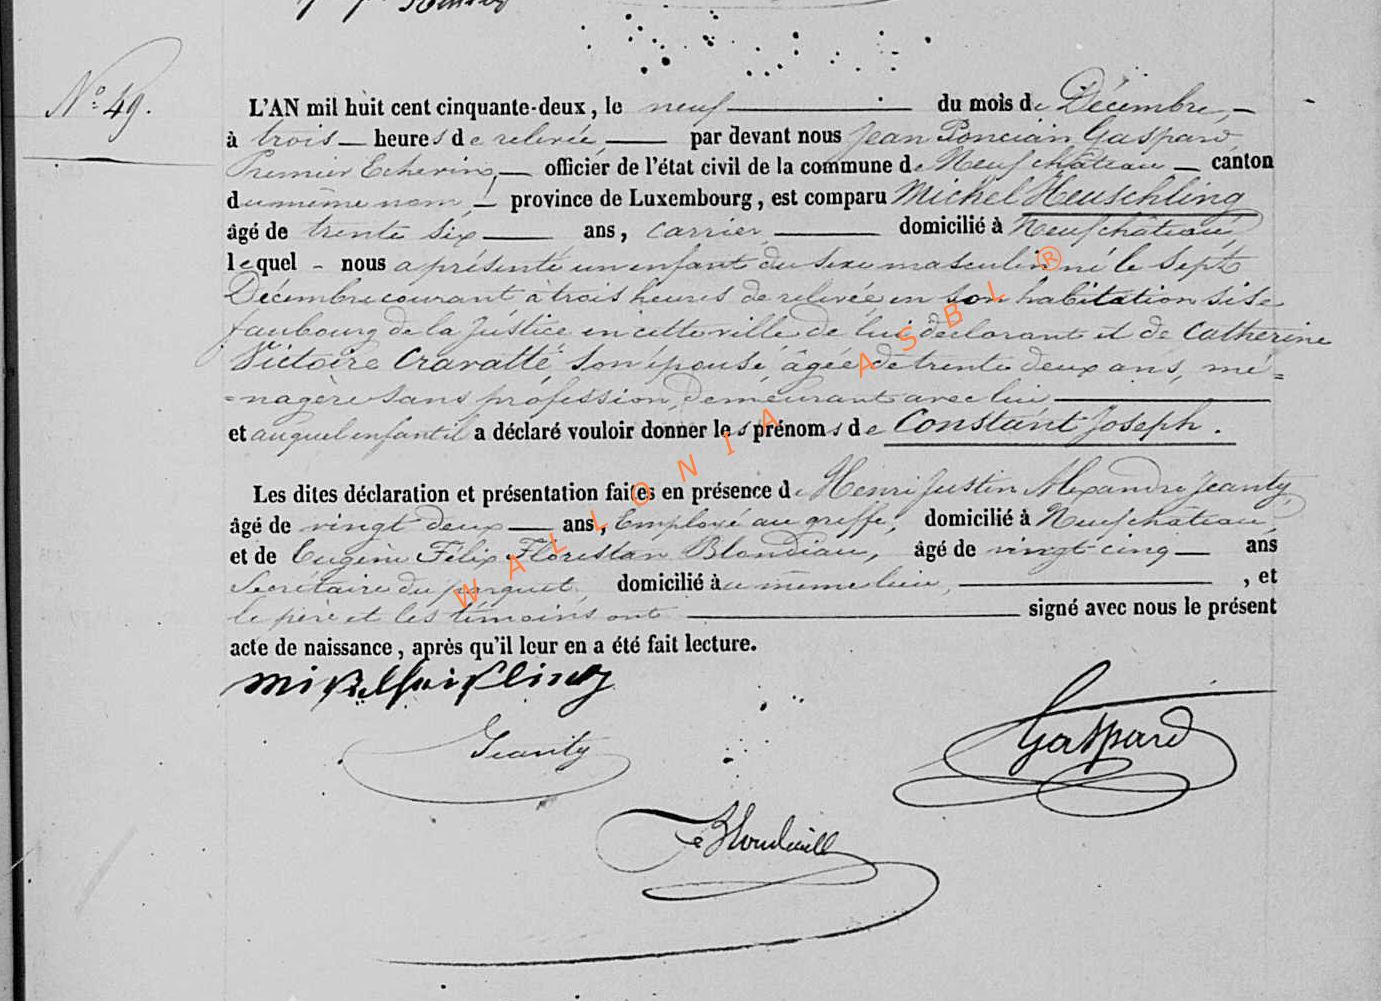 N° 49.
L'AN mil huit cent cinquante-deux, le neuf du mois de Décembre,
à trois heures de relevée, par devant nous Jean Poncian Gaspard
Premier Echevin, officier de l'état civil de la commune de Neufchâteau canton
du même nom, province de Luxembourg, est comparu Michel Heuschling
âgé de trente six ans, carrier, domicilié à Neufchâteau,
lequel nous a présenté un enfant du sexe masculin né le sept
Décembre courant à trois heures de relevée en son habitation sise
faubourg de la Justice en cette ville de lui déclarant et de Catherine
Victoire Cravatte son épouse, âgée de trente deux ans, mé=
=nagère sans profession, demeurant avec lui
et auquel enfant il a déclaré vouloir donner les prénoms de Constant Joseph.
Les dites déclaration et présentation faites en présence de Henri Justin Alexandre Jeanty
âgé de vingt deux ans, Employé au greffe, domicilié à Neufchâteau,
et de Eugène Félix Florestan Blondiau, âgé de vingt-cinq ans
Secrétaire du parquet, domicilié au même lieu, , et
le père et les témoins ont signé avec nous le présent
acte de naissance, après qu'il leur en a été fait lecture.
Michel Heuschling
Jeanty
Gaspard
WALLONIA ASBL ®